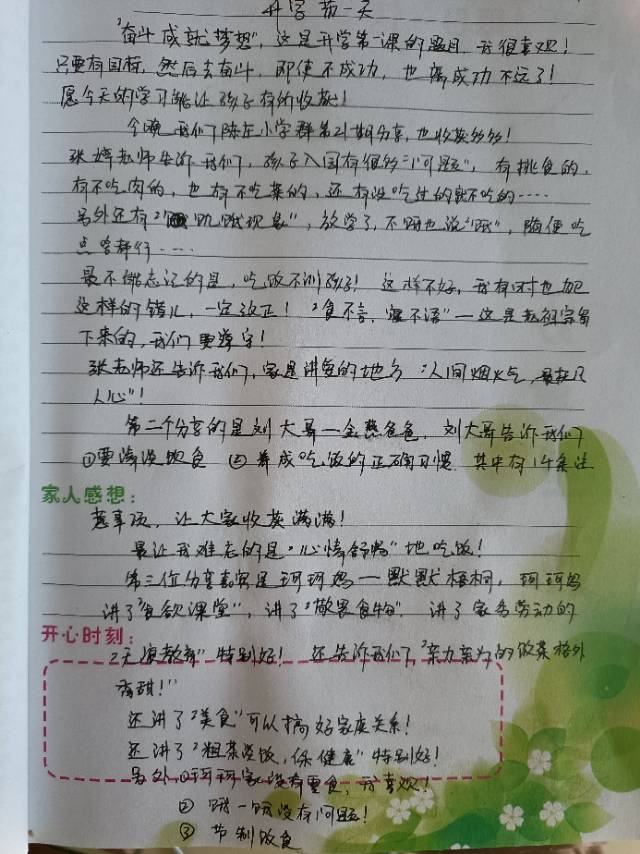 开学第一天
"奋斗成就梦想", 这是开学第一课的题目, 我很喜欢!
只要有目标, 然后去奋斗, 即使不成功, 也离成功不远了!
愿今天的学习能让孩子有所收获!
今晚我们陈庄小学群第21期分享, 也收获多多!
张婷老师告诉我们, 孩子入园有很多"问题", 有挑食的,
有不吃肉的, 也有不吃菜的, 还有没吃过的就不吃的……
另外还有"饥饿现象", 放学了, 不饿也说"饿", 随便吃
点啥都行……
最不能忘记的是, 吃饭不训孩子! 这样不好, 我有时也犯
这样的错儿, 一定改正! "食不言, 寝不语"—这是老祖宗留
下来的, 我们要遵守!
张老师还告诉我们, 家是讲爱的地方: "人间烟火气, 最抚凡
人心"!
第二个分享的是刘大哥—金燕爸爸, 刘大哥告诉我们
①要清淡饮食 ②养成吃饭的正确习惯 其中有14条注
家人感想:
意事项, 让大家收获满满!
最让我难忘的是"心情舒畅"地吃饭!
第三位分享嘉宾是珂珂妈—默默梧桐, 珂珂妈
讲了"食欲课堂", 讲了"敬畏食物", 讲了家务劳动的
开心时刻:
"无痕教育"特别好! 还告诉我们, "亲力亲为的做菜格外
香甜!"
还讲了"美食"可以搞好家庭关系!
还讲了"粗茶淡饭, 保健康"特别好!
另外, ①珂珂家没有零食, 我喜欢!
② 饿一饿没有问题!
③ 节制饮食